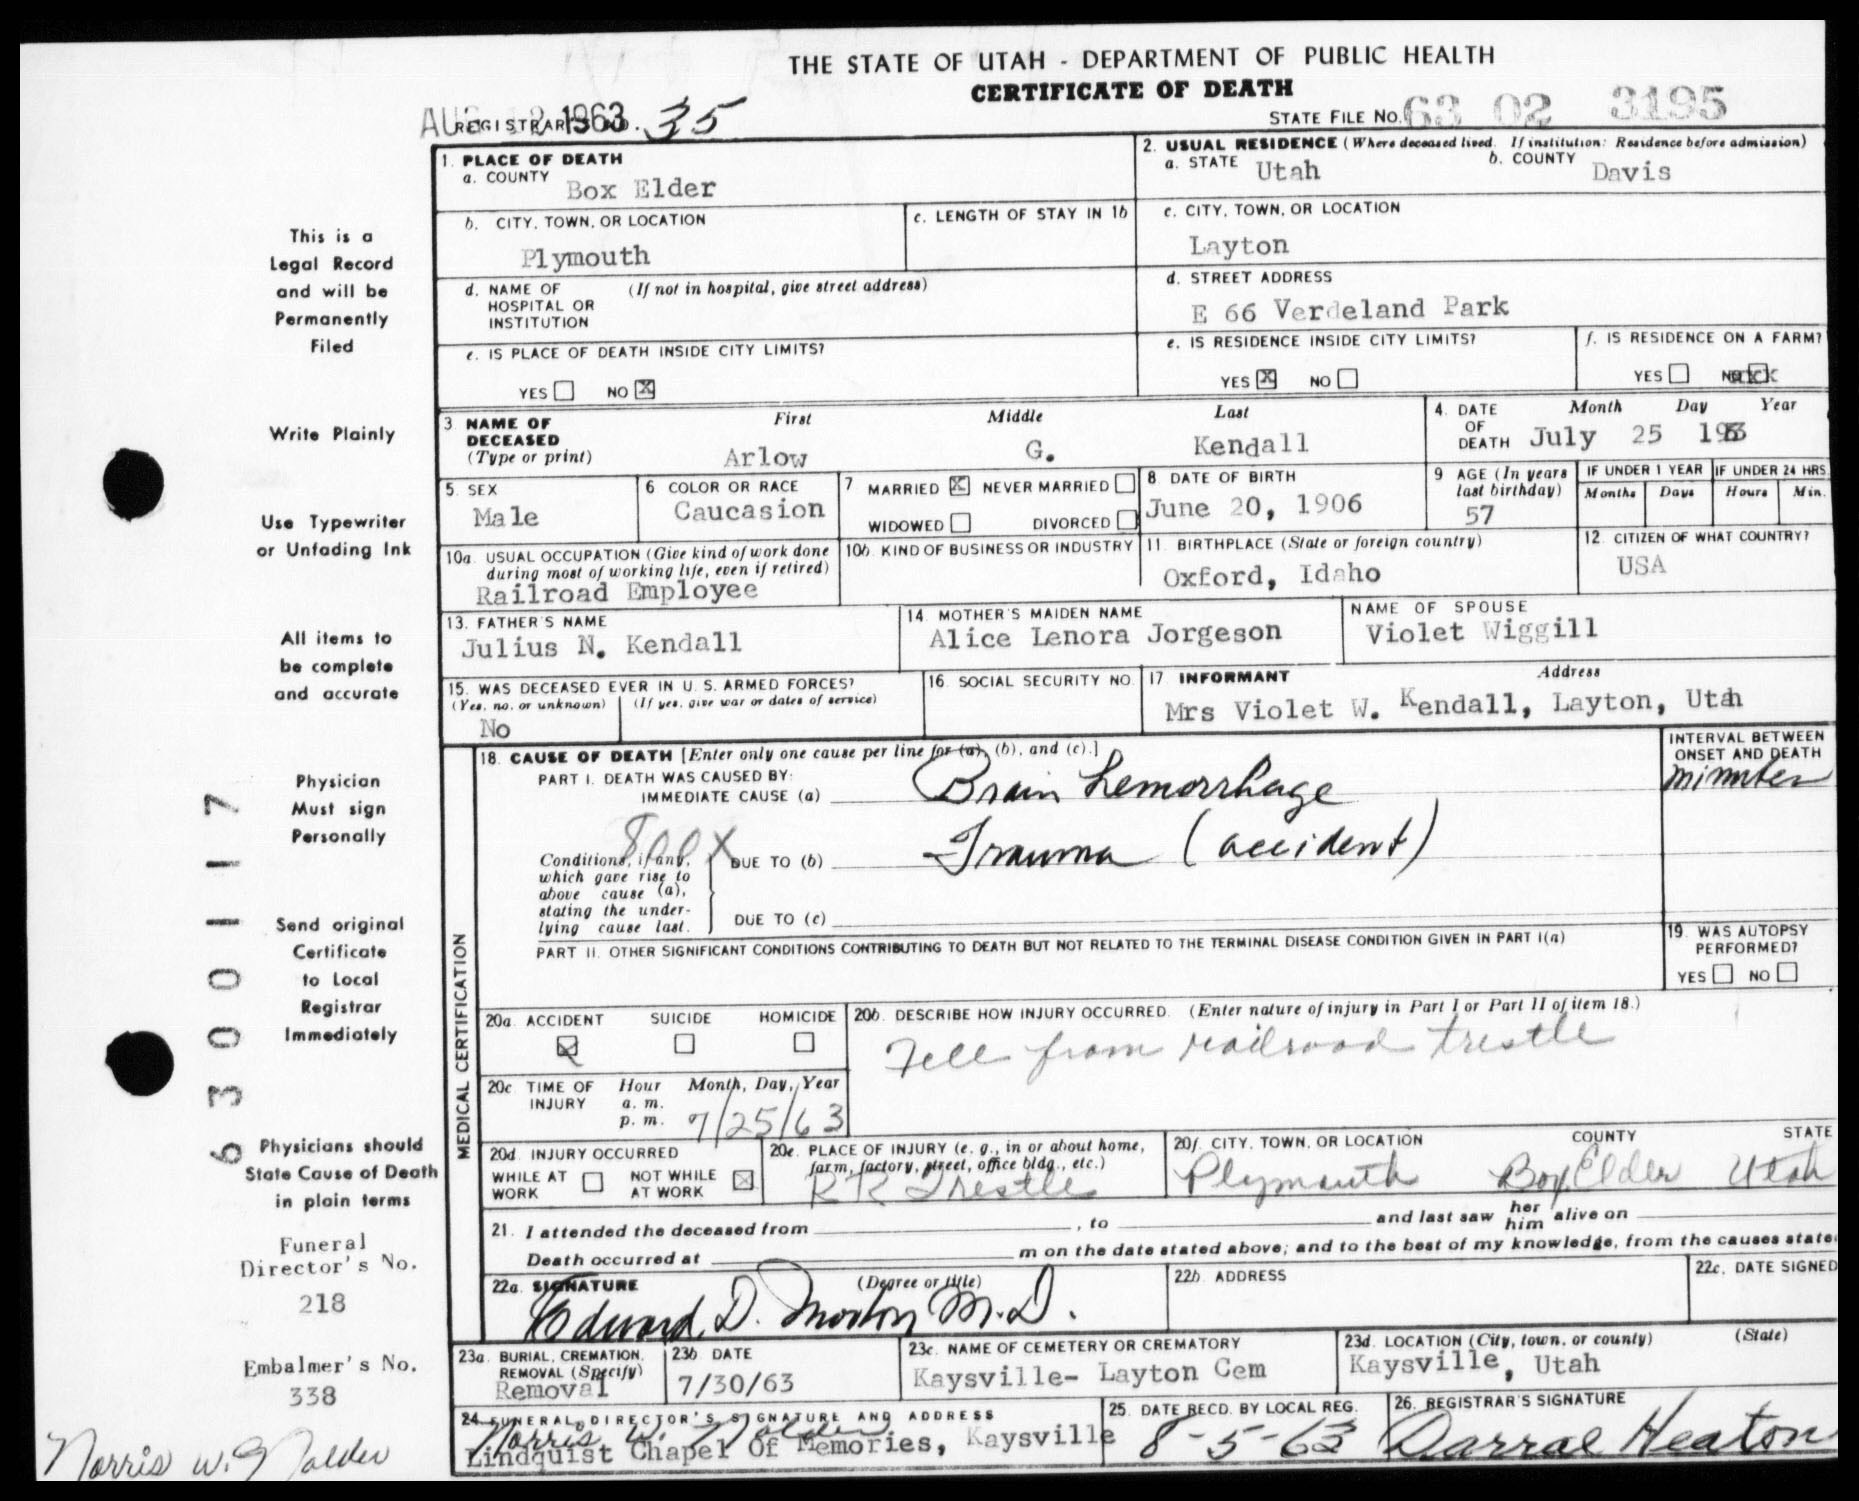 THE STATE OF UTAH - DEPARTMENT OF PUBLIC HEALTH
CERTIFICATE OF DEATH
AUG 12 1963
REGISTRAR'S NO. 35
STATE FILE NO. 63 02 3195
1. PLACE OF DEATH
a. COUNTY Box Elder
2. USUAL RESIDENCE (Where deceased lived. If institution: Residence before admission)
a. STATE Utah b. COUNTY Davis
b. CITY, TOWN, OR LOCATION
Plymouth
c. LENGTH OF STAY IN 1b
c. CITY, TOWN, OR LOCATION
Layton
d. NAME OF HOSPITAL OR INSTITUTION (If not in hospital, give street address)
d. STREET ADDRESS
E 66 Verdeland Park
e. IS PLACE OF DEATH INSIDE CITY LIMITS?
YES NO X
e. IS RESIDENCE INSIDE CITY LIMITS?
YES X NO
f. IS RESIDENCE ON A FARM?
YES NO
3 NAME OF DECEASED (Type or print) First Middle Last
Arlow G. Kendall
4. DATE OF DEATH Month Day Year
July 25 1963
5. SEX
Male
6 COLOR OR RACE
Caucasion
7 MARRIED X NEVER MARRIED
WIDOWED DIVORCED
8 DATE OF BIRTH
June 20, 1906
9 AGE (In years last birthday)
57
IF UNDER 1 YEAR IF UNDER 24 HRS.
Months Days Hours Min.
10a. USUAL OCCUPATION (Give kind of work done during most of working life, even if retired)
Railroad Employee
10b. KIND OF BUSINESS OR INDUSTRY
11. BIRTHPLACE (State or foreign country)
Oxford, Idaho
12. CITIZEN OF WHAT COUNTRY?
USA
13. FATHER'S NAME
Julius N. Kendall
14. MOTHER'S MAIDEN NAME
Alice Lenora Jorgeson
NAME OF SPOUSE
Violet Wiggill
15. WAS DECEASED EVER IN U. S. ARMED FORCES?
(Yes, no, or unknown) (If yes, give war or dates of service)
No
16. SOCIAL SECURITY NO.
17 INFORMANT Address
Mrs Violet W. Kendall, Layton, Utah
MEDICAL CERTIFICATION
18. CAUSE OF DEATH [Enter only one cause per line for (a), (b), and (c).]
PART I. DEATH WAS CAUSED BY:
IMMEDIATE CAUSE (a) Brain hemorrhage
INTERVAL BETWEEN ONSET AND DEATH
minutes
800X
Conditions, if any, which gave rise to above cause (a), stating the underlying cause last.
DUE TO (b) Trauma (accident)
DUE TO (c)
PART II. OTHER SIGNIFICANT CONDITIONS CONTRIBUTING TO DEATH BUT NOT RELATED TO THE TERMINAL DISEASE CONDITION GIVEN IN PART I(a)
19. WAS AUTOPSY PERFORMED?
YES NO
20a. ACCIDENT SUICIDE HOMICIDE
X
20b. DESCRIBE HOW INJURY OCCURRED. (Enter nature of injury in Part I or Part II of item 18.)
Fell from railroad trestle
20c TIME OF INJURY Hour Month, Day, Year
a. m.
p. m. 7/25/63
20d. INJURY OCCURRED
WHILE AT WORK NOT WHILE AT WORK X
20e. PLACE OF INJURY (e. g., in or about home, farm, factory, street, office bldg., etc.)
RR Trestle
20f. CITY, TOWN, OR LOCATION COUNTY STATE
Plymouth Box Elder Utah
21. I attended the deceased from , to and last saw her him alive on
Death occurred at m on the date stated above; and to the best of my knowledge, from the causes state
22a. SIGNATURE (Degree or title)
Edward D. Morton M.D.
22b. ADDRESS
22c. DATE SIGNED
23a. BURIAL, CREMATION, REMOVAL (Specify)
Removal
23b DATE
7/30/63
23c. NAME OF CEMETERY OR CREMATORY
Kaysville- Layton Cem
23d. LOCATION (City, town, or county) (State)
Kaysville, Utah
24. FUNERAL DIRECTOR'S SIGNATURE AND ADDRESS
Norris W. Nalder
Lindquist Chapel Of Memories, Kaysville
25. DATE RECD. BY LOCAL REG.
8-5-63
26. REGISTRAR'S SIGNATURE
Darral Heaton
This is a
Legal Record
and will be
Permanently
Filed
Write Plainly
Use Typewriter
or Unfading Ink
All items to
be complete
and accurate
Physician
Must sign
Personally
Send original
Certificate
to Local
Registrar
Immediately
Physicians should
State Cause of Death
in plain terms
Funeral
Director's No.
218
Embalmer's No.
338
Norris W. Nalder
6300117